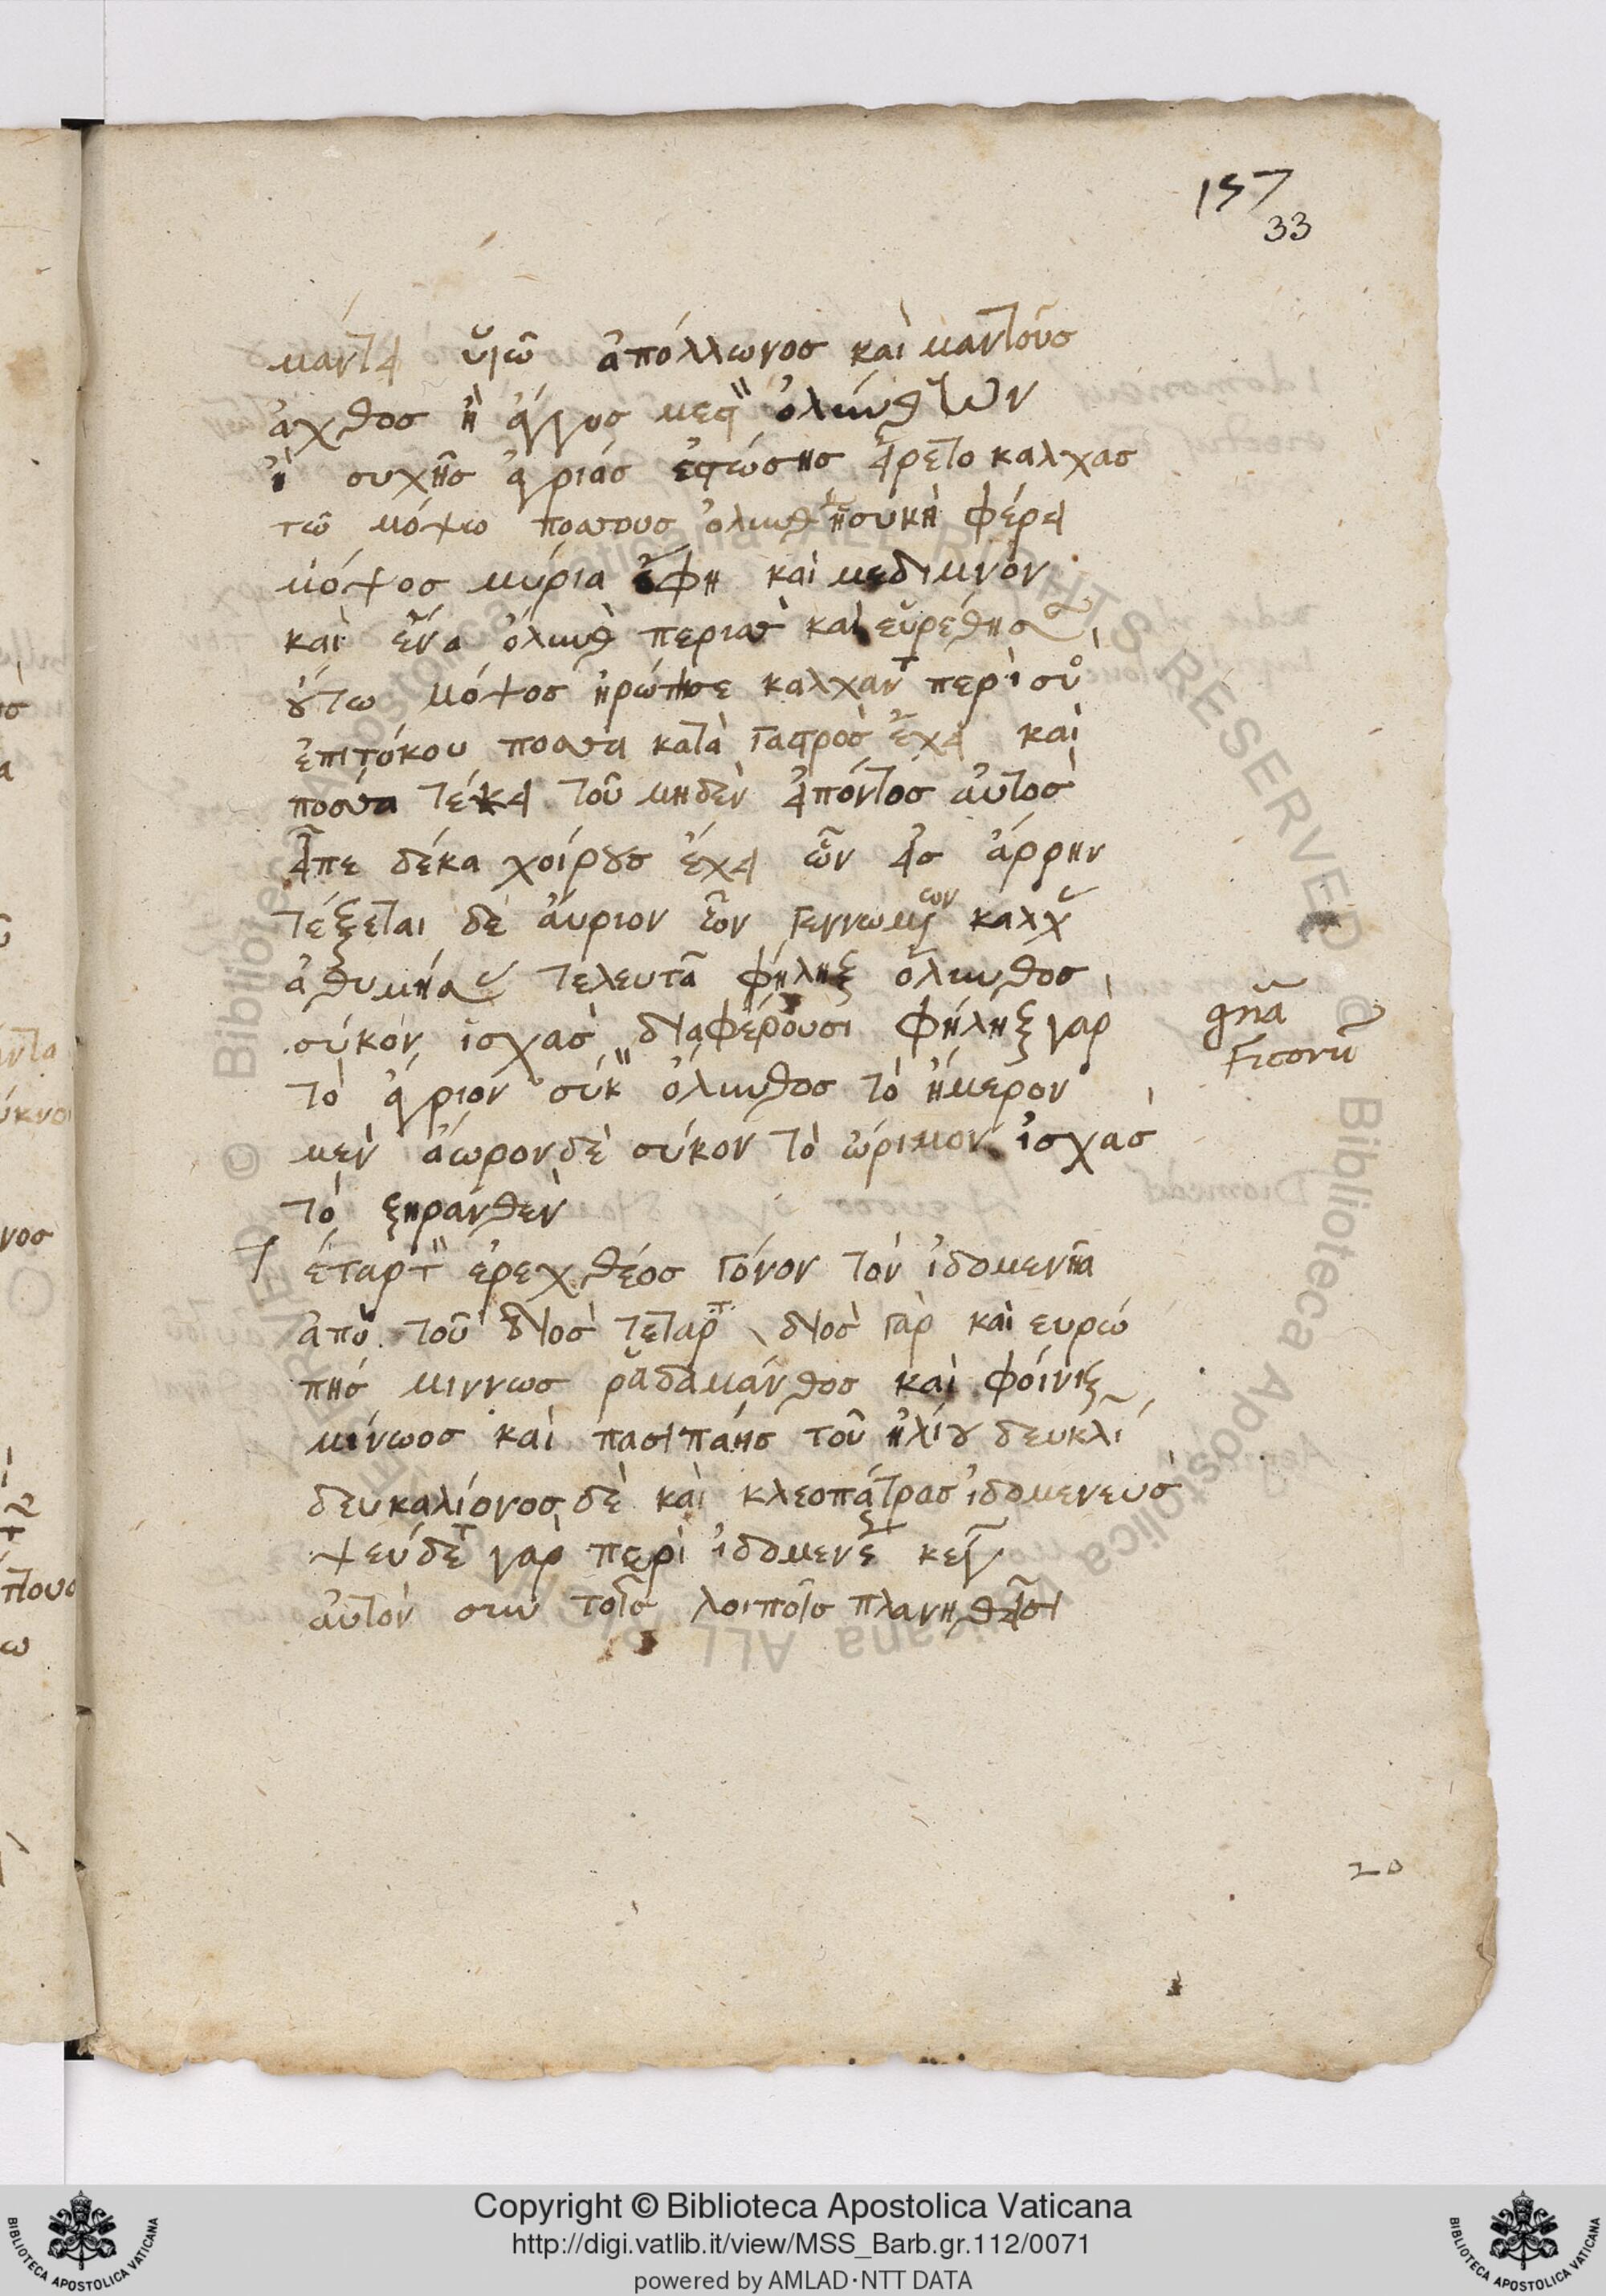 157
33
μάντει ὑιῶ ἀπόλλωνοσ καὶ μαντοῦσ
ἀχθοσ ἢ ἄγγοσ μεστ" ὀλύνθων
ἢ συχῆσ ἀγριάσ ἑστώσησ εἴρετο καλχασ
τῶ μόψω ποσουσ ὀλυνθ ἡ σύκὴ φέρει
μόψοσ μύρια ἔφη καὶ μεδιμνόν
καὶ ἕνα ὄλυνθ περισσ καὶ εὑρέθησ
ὅυτω μόψοσ ἠρώτησε καλχαντ περὶ συὸσ
ἐπιτόκου ποσα κατὰ γαστρὸσ ἔχει καὶ
ποσα τέκει τοῦ μηδὲν εἰπόντοσ ἀυτὸσ
εἶπε δέκα χοίρουσ ἔχει ὧν εἷσ ἄρρην
τέξεται δὲ ἄυριον ὧν γεννωμένων καλχ
ἀθυμήσασ τελευτᾶ φήληξ ὄλυνθοσ
σύκόν ἰσχασ διαφέρουσι φήληξ γαρ
τὸ ἄγριόν σύκ" ὄλυνθοσ τὸ ἥμερον
μεν ἄωρον δὲ σύκον τὸ ὥριμον ἰσχασ
τὸ ξηρανθεν
gna
Ficorū
τ έταρτ" ἐρεχθέοσ γόνον τὸν ἰδομενῆα
ἀπὸ τοῦ διὸσ τεταρτ διὸσ γὰρ καὶ ευρώ
πησ μιννωσ ῥαδαμάνθοσ καὶ φοίνιξ
μίνωοσ καὶ πασιπάησ τοῦ ἡλίου δευκλί
δευκαλίονοσ δὲ καὶ κλεοπάτρασ ἰδομενευσ
ψεύδετ γαρ περὶ ἰδομενέ
ἀυτὸν συν τοῖσ λοιποῖσ πλανηθεῖσι
20
Copyright © Biblioteca Apostolica Vaticana
http://digi.vatlib.it/view/MSS_Barb.gr.112/0071
powered by AMLAD·NTT DATA